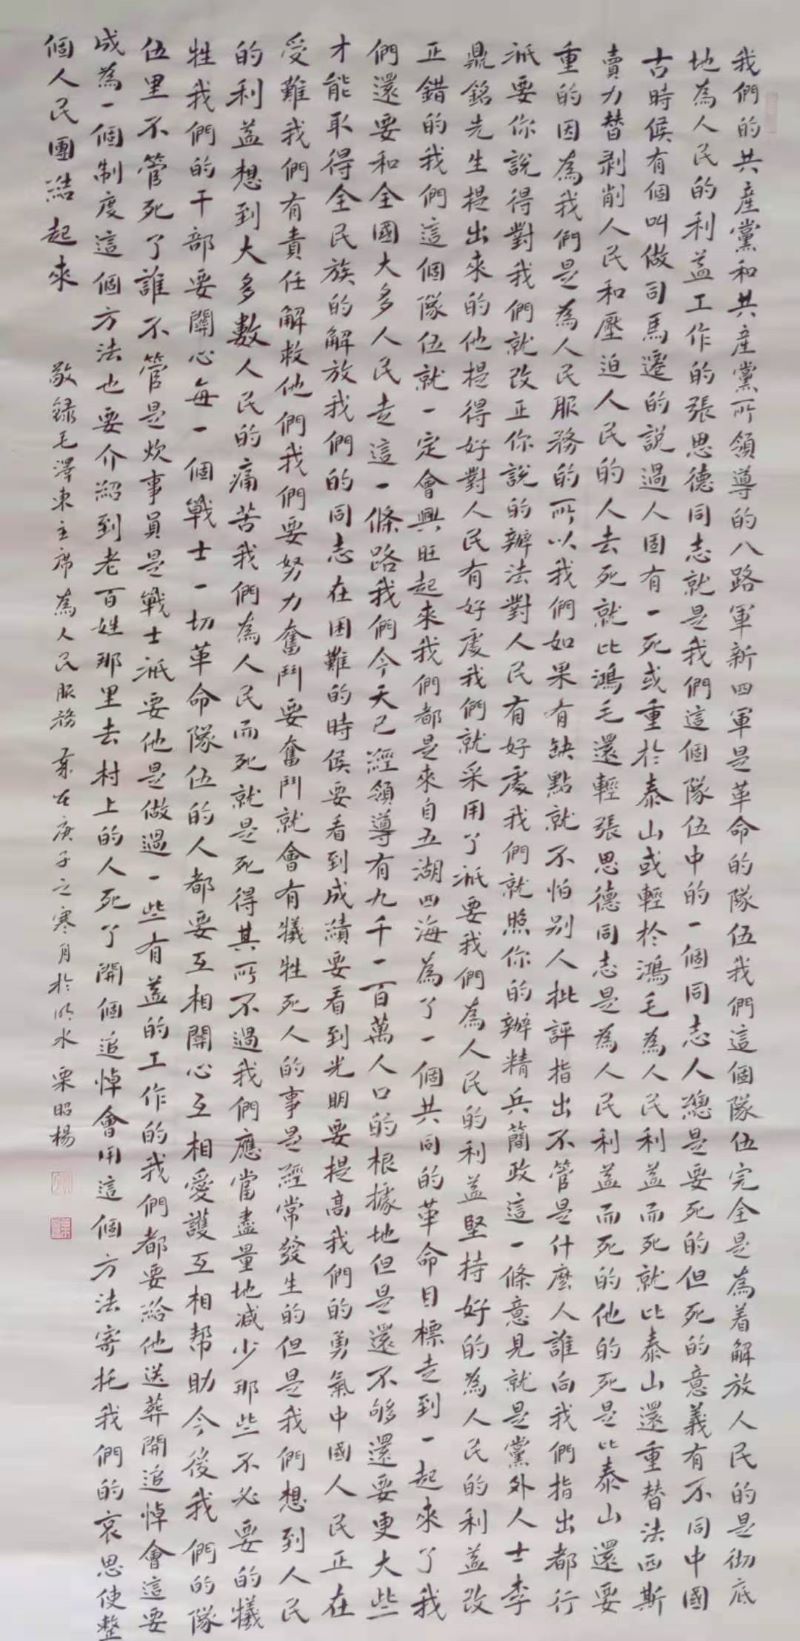 我們的共產黨和共產黨所領導的八路軍新四軍是革命的隊伍我們這個隊伍完全是為着解放人民的是彻底
地為人民的利益工作的張思德同志就是我們這個隊伍中的一個同志人總是要死的但死的意義有不同中國
古時候有個叫做司馬遷的說過人固有一死或重於泰山或輕於鴻毛為人民利益而死就比泰山還重替法西斯
賣力替剥削人民和壓迫人民的人去死就比鴻毛還輕張思德同志是為人民利益而死的他的死是比泰山還要
重的因為我們是為人民服務的所以我們如果有缺點就不怕别人批評指出不管是什麼人誰向我們指出都行
祇要你說得對我們就改正你說的辦法對人民有好處我們就照你的辦精兵簡政這一條意見就是黨外人士李
鼎銘先生提出來的他提得好對人民有好處我們就采用了祇要我們為人民的利益堅持好的為人民的利益改
正錯的我們這個隊伍就一定會興旺起來我們都是來自五湖四海為了一個共同的革命目標走到一起來了我
們還要和全國大多人民走這一條路我們今天已經領導有九千一百萬人口的根據地但是還不够還要更大些
才能取得全民族的解放我們的同志在困難的時候要看到成績要看到光明要提高我們的勇氣中國人民正在
受難我們有責任解救他們我們要努力奮鬥要奮鬥就會有犧牲死人的事是經常發生的但是我們想到人民
的利益想到大多數人民的痛苦我們為人民而死就是死得其所不過我們應當盡量地减少那些不必要的犧
牲我們的干部要關心每一個戰士一切革命隊伍的人都要互相關心互相愛護互相帮助今後我們的隊
伍里不管死了誰不管是炊事員是戰士祇要他是做過一些有益的工作的我們都要給他送葬開追悼會這要
成為一個制度這個方法也要介紹到老百姓那里去村上的人死了開個追悼會用這個方法寄托我們的哀思使整
個人民團結起來
敬録毛澤東主席為人民服務 歲在庚子之寒月於水 栗昭楊